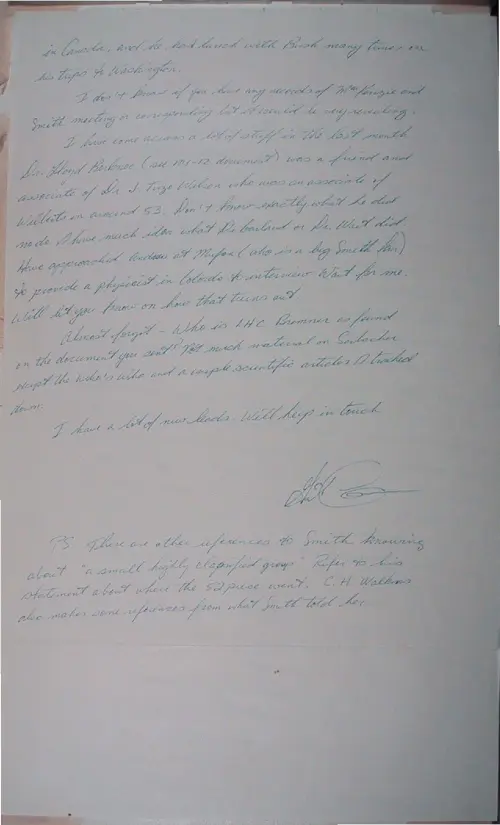 in Canada, and he had lunch with Bush many times on
his trips to Washington.
I don't know if you have any records of MacKenzie and
Smith meeting or corresponding but it would be very revealing.
I have come across a lot of stuff in the last month
Dr. Lloyd Berkner (see MJ-12 document) was a friend and
associate of Dr. J. Tuzo Wilson who was an associate of
Wilbert's in around 53. Don't know exactly what he did
have much idea what or Dr. Wait did
Have approached at Mufon (who is a big Smith fan)
to provide a physicist in Colorado to interview Wait for me.
Will let you know on how that turns out
Almost forgot - Who is LHC as found
on the document you sent? Not much material on Sarbacher
except the Who's Who and a couple scientific articles I tracked
down.
I have a lot of new leads. Will keep in touch
PS. There are other references to Smith knowing
about "a small highly classified group" Refer to his
statement about where the 52 piece went. C.H
also makes some references from what Smith told her